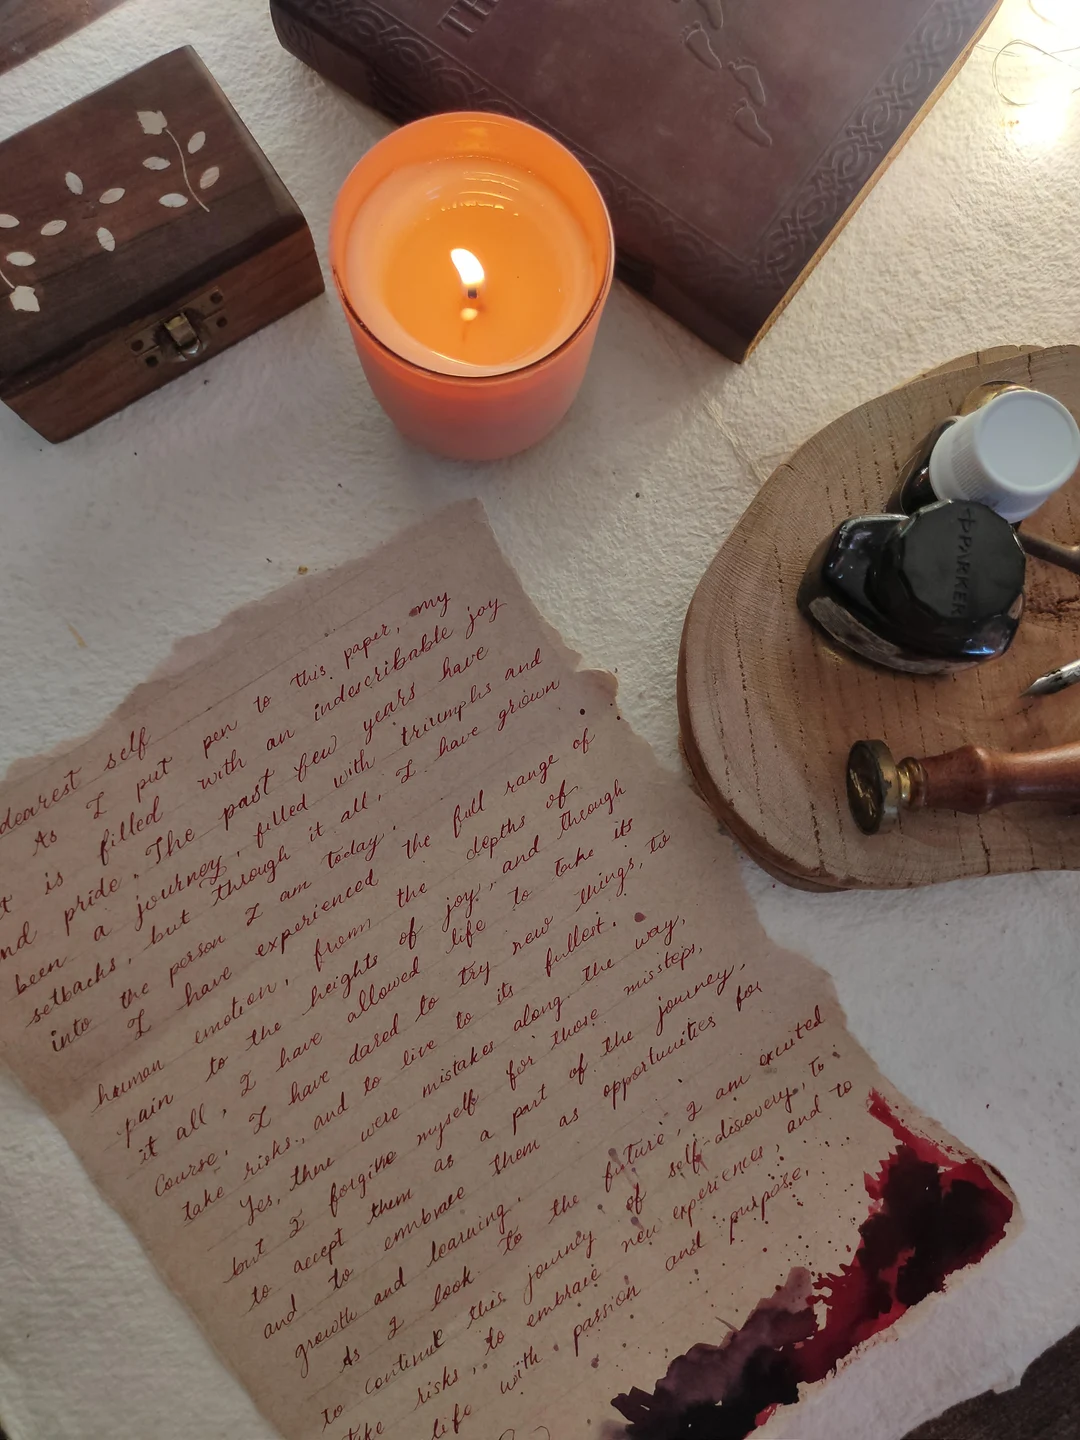 TH
PARKER
dearest self
As I put pen to this paper, my
is filled with an indescribable joy
and pride. The past few years have
been a journey, filled with triumphs and
setbacks, but through it all, I have grown
into the person I am today.
I have experienced the full range of
human emotion, from the depths of
pain to the heights of joy, and through
it all, I have allowed life to take its
course,
I have dared to try new things, to
take risks, and to live to its fullest.
Yes, there were mistakes along the way,
but I forgive myself for those missteps,
to accept them as a part of the journey,
and to embrace them as opportunities for
growth and learning.
As I look to the future, I am excited
to continue this journey of self-discovery, to
take risks, to embrace new experiences, and to
life with passion and purpose.